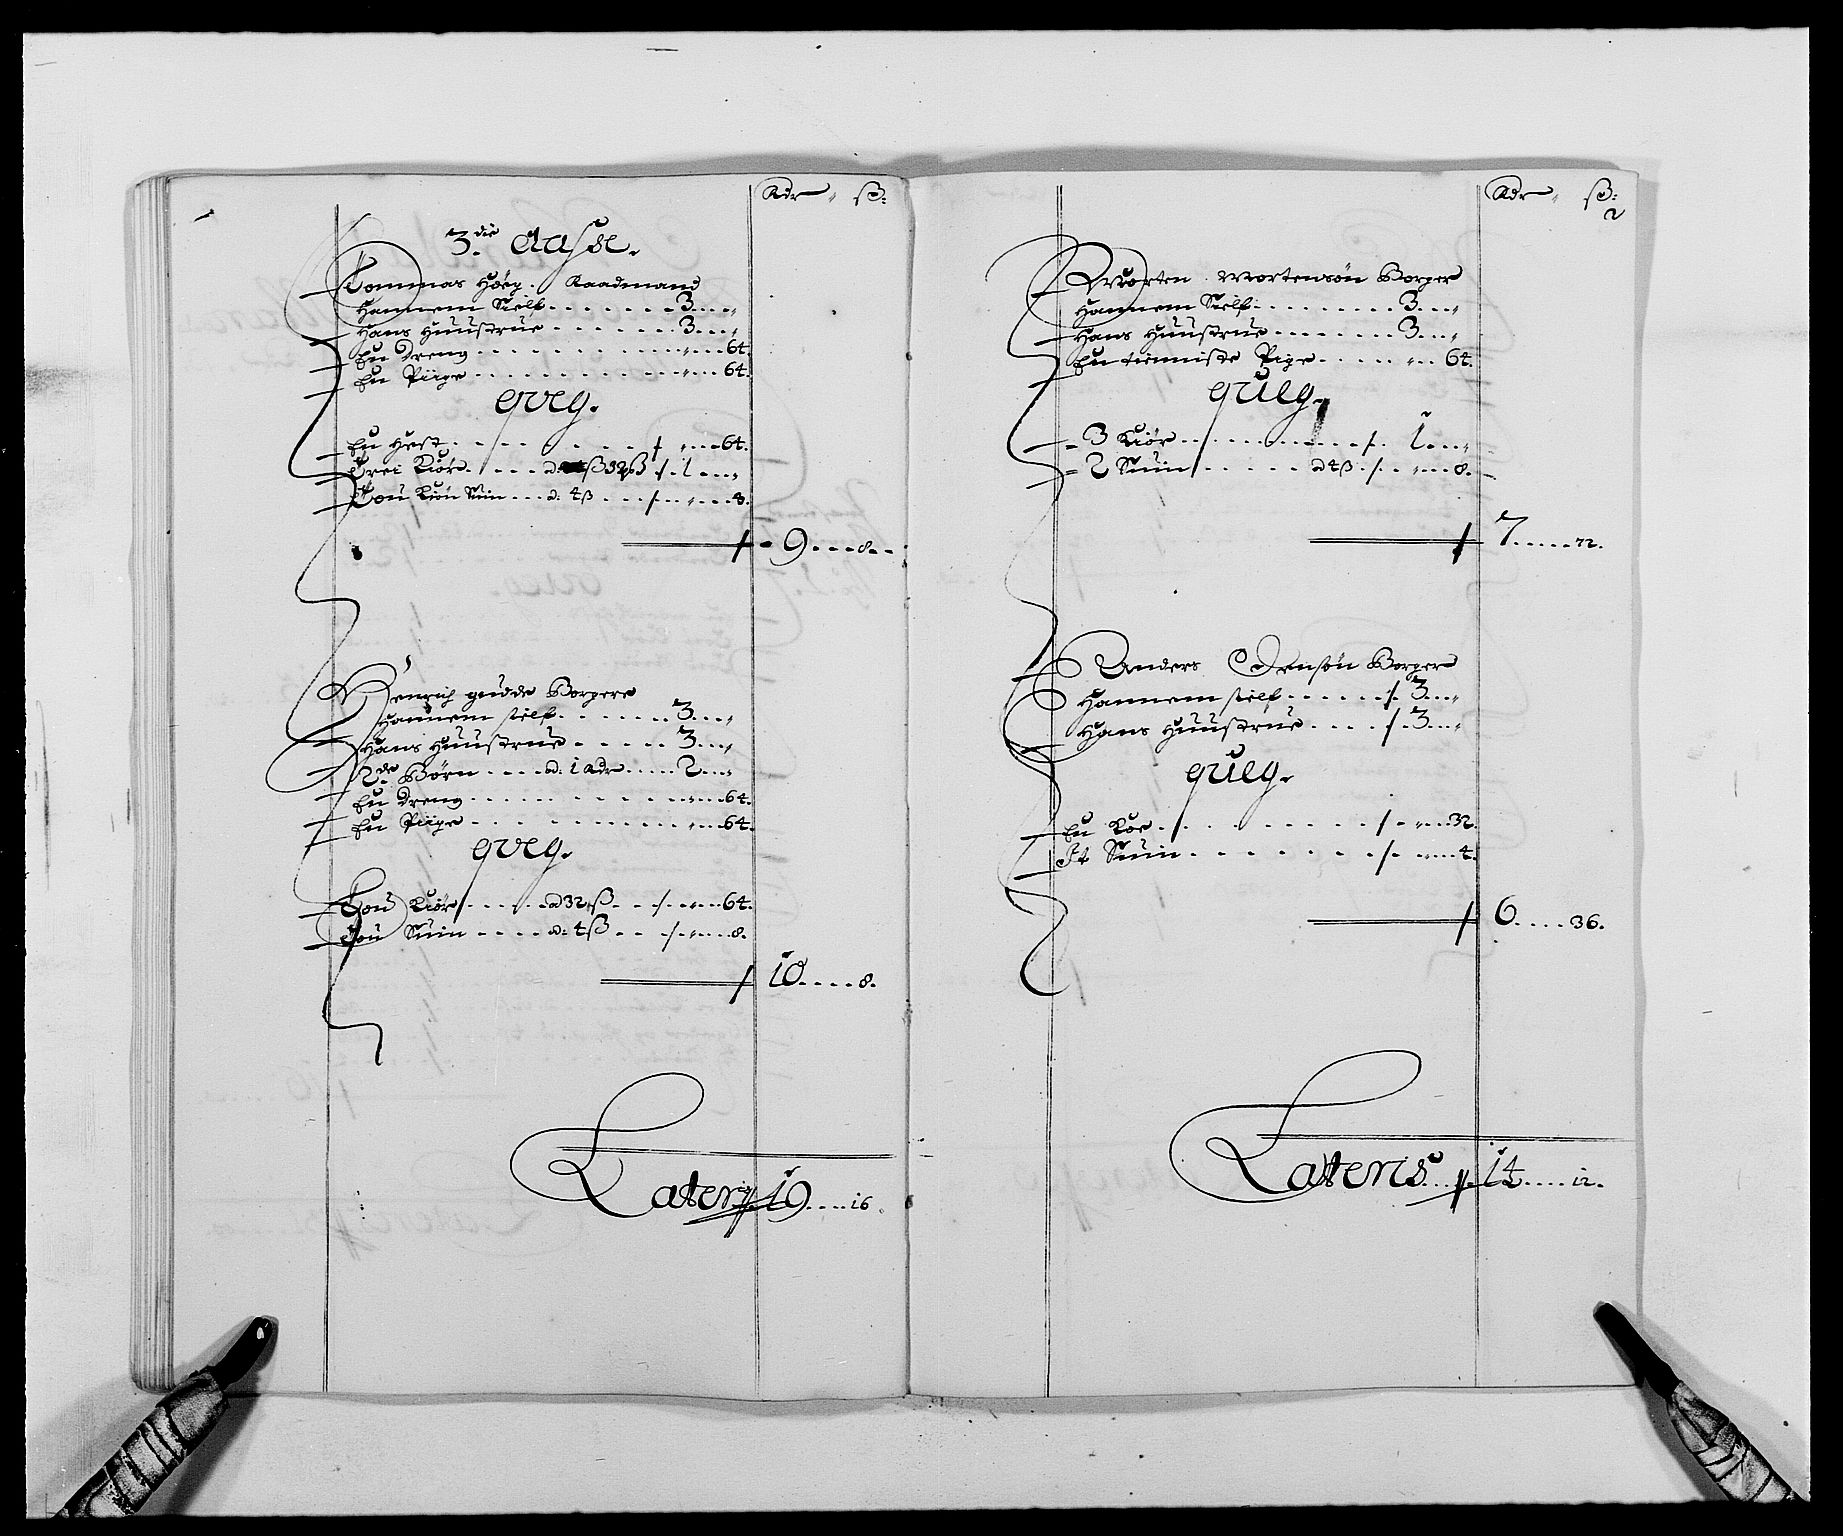 Rdr ß:
3. die Classe.
Tommas Høeg. Raadmand
Hannem Sielf . . . . . . . 3 . . . "
Hans Huustrue . . . . . . 3 . . . "
En Dreng . . . . . . . " . . . 64.
En Piige . . . . . . . " . . . 64.
qveg.
En Hest . . . . . . . / " . . . 64.
Trei Kiør . . . . . ß 32 ß / 1 . . . "
Tou Suin . . . a: 4 ß . . . / " . . . 8.
9 . . . . 8 . .
Henrich gudde Borgere
Hannem sielf . . . . . . . 3 . . . "
Hans Huustrue . . . . . 3 . . . "
2de Børn . . . . a: 1 Rdr . . . . 2 . . . "
En Dreng . . . . . . . " . . . 64.
En Piige . . . . . . . " . . . 64.
qveg.
Tou Kiør . . . . . a 32 ß . . / . " . . . 64.
Tou Suin . . . . a: 4 ß . . / . " . . . 8.
10 . . . . 8.
Lateris 19 . . . . 16.
Rdr ß:
2
Morten Mortensøn Borger
Hannem Sielf . . . . . . . . 3 . . . "
Hans Huustrue . . . . . . . 3 . . . "
En tienniste Pige . . . . " . . 64.
queg.
3 Kiør . . . . . . . / . 1 . . . "
2 Suin . . . . . a 4 ß . / . " . . . 8.
7 . . . . . 72.
Anders Jensøn Borgere
Hannem sielf . . . . . . / . 3 . . . "
Hans Huustrue . . . . / . 3 . . . "
queg.
En Koe . . . . . . . / . " . . . 32.
It Suin . . . . . . . / . " . . . 4.
6 . . . . 36.
Lateris . . 14 . . . . . 12.